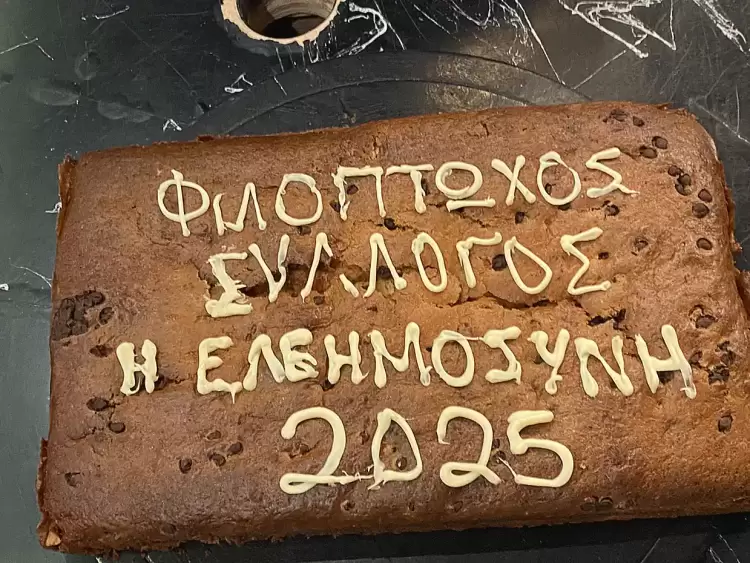 ΦΙΛΟΠΤΩΧΟΣ
ΣΥΛΛΟΓΟΣ
Η ΕΛΕΗΜΟΣΥΝΗ
2025